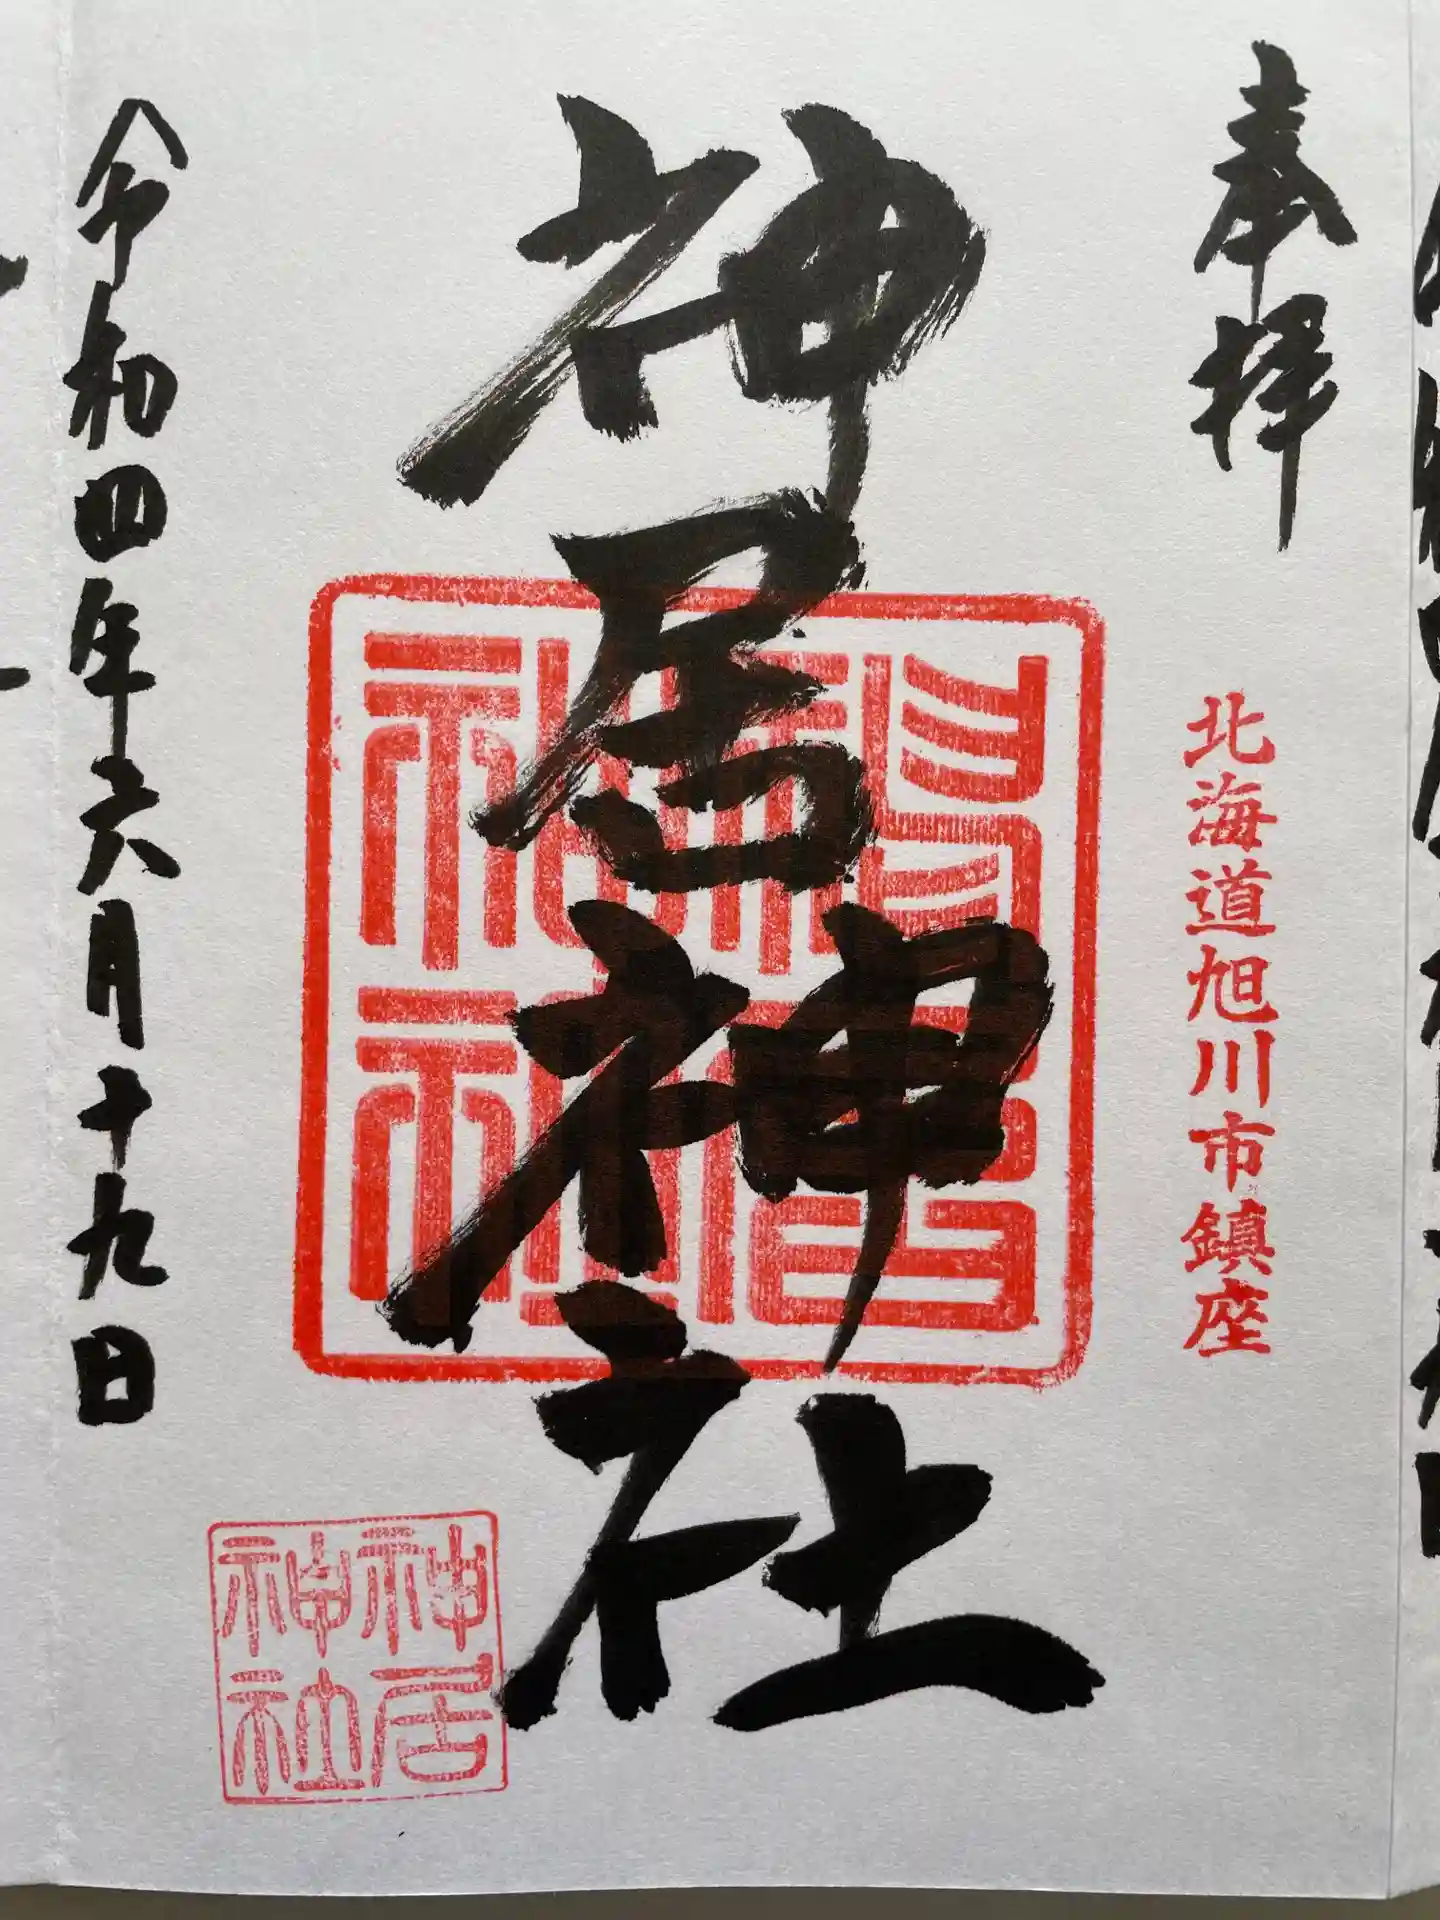 奉拝
北海道旭川市鎮座
神居神社
神居神社
令和四年六月十九日